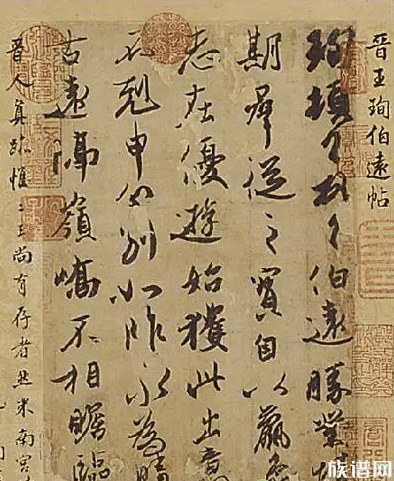 晉王珣伯遠帖
珣頓首頓首伯遠勝業情
期群從之寶自以羸患
志在優遊始獲此出意
不剋申分別如昨永為疇
古遠隔嶺嶠不相瞻臨
晉人真跡惟二王尚有存者然米南宮
族谱网